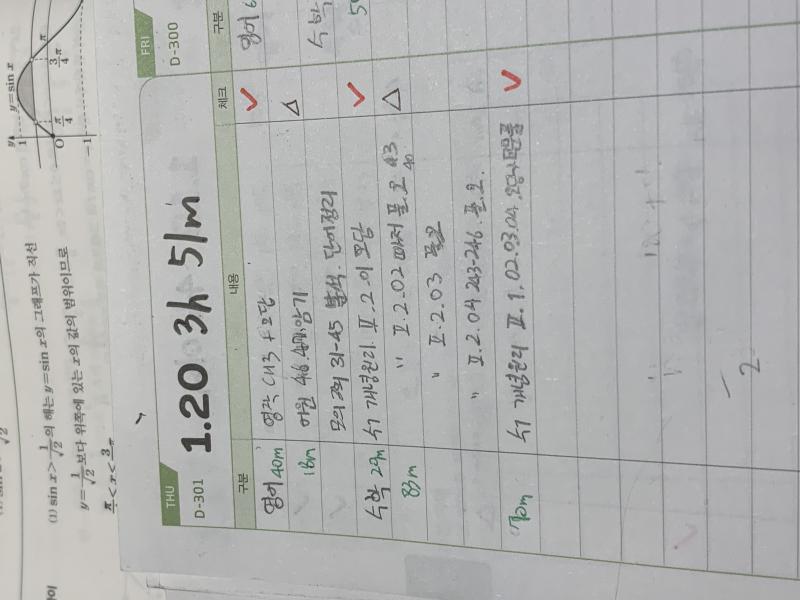 y
y=sin x
1
O
π/4
3/4 π
π
-1
(1) sin x > 1/√2 의 해는 y=sin x의 그래프가 직선
y=1/√2 보다 위쪽에 있는 x의 값의 범위이므로
π
THU
D-301
1.20 3h 51m
구분
내용
체크
영어 40m
영각 CH3 +오답
18m
어원
암기
모의고사 31-45
단어정리
수학 29m
수1 개념원리 Ⅱ.2.01 오답
83m
" Ⅱ.2.02 마저 풀.오
" Ⅱ.2.03
" Ⅱ.2.04 243-246.풀.오.
70m
수1 개념원리 Ⅲ.1.02.03.04.
FRI
D-300
구분
영어
수학